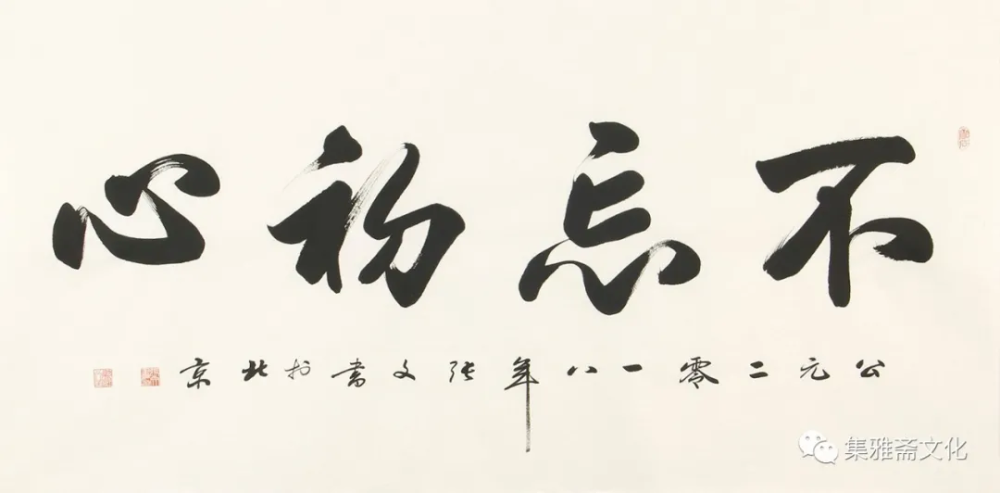 不忘初心
公元二零一八年张文书於北京
集雅斋文化